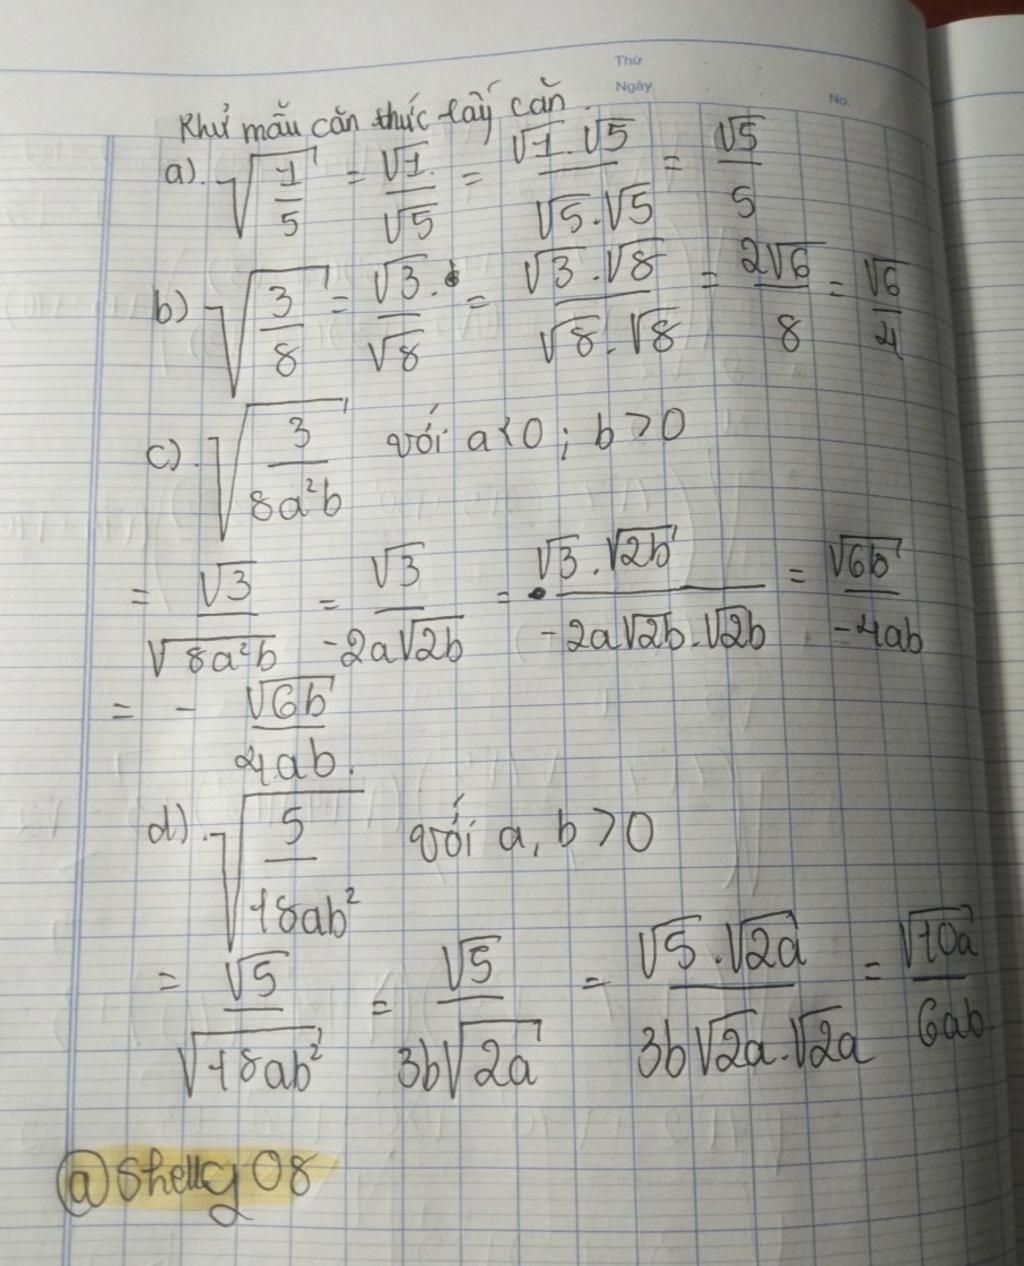 Thứ
Ngày
No.
Khử mẫu căn thức lấy căn.
a). √(1/5) = √1/√5 = (√1.√5)/(√5.√5) = √5/5
b) √(3/8) = √3/√8 = (√3.√8)/(√8.√8) = 2√6/8 = √6/4
c). √(3/(8a²b)) với a<0; b>0
= √3/√(8a²b) = √3/(-2a√(2b)) = (√3.√(2b))/(-2a√(2b).√(2b)) = √(6b)/(-4ab)
= - √(6b)/(4ab).
d). √(5/(18ab²)) với a, b>0
= √5/√(18ab²) = √5/(3b√(2a)) = (√5.√(2a))/(3b√(2a).√(2a)) = √(10a)/(6ab)
@Shelly08